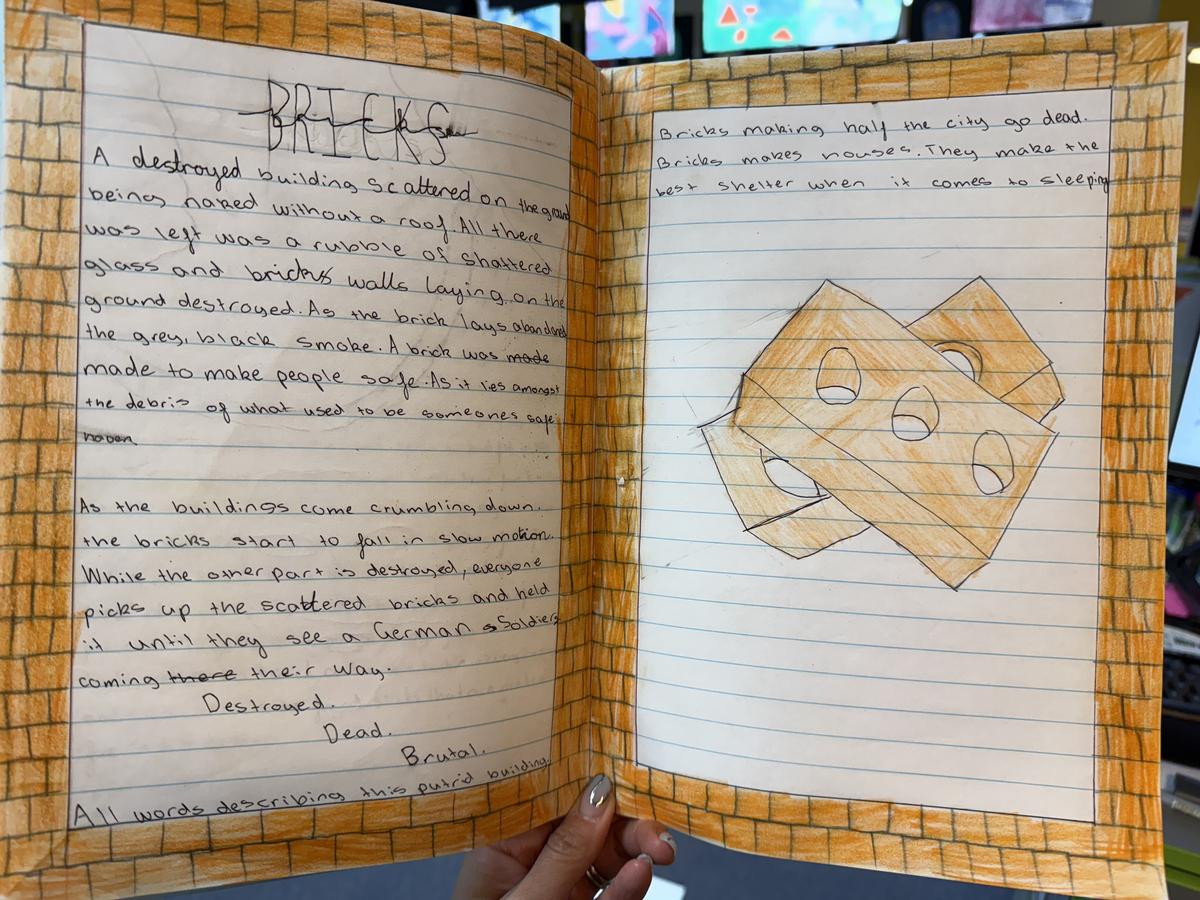 BRICKS
A destroyed building scattered on the ground
being naked without a roof. All there
was left was a rubble of shattered
glass and bricks walls laying on the
ground destroyed. As the brick lays abandoned
the grey, black smoke. A brick was made
made to make people safe. As it lies amongst
the debris of what used to be someones safe
haven.
As the buildings come crumbling down.
the bricks start to fall in slow motion.
While the other part is destroyed, everyone
picks up the scattered bricks and held
it until they see a German Soldiers
coming there their way.
Destroyed.
Dead.
Brutal.
All words describing this putrid building.
Bricks making half the city go dead.
Bricks makes houses. They make the
best shelter when it comes to sleeping